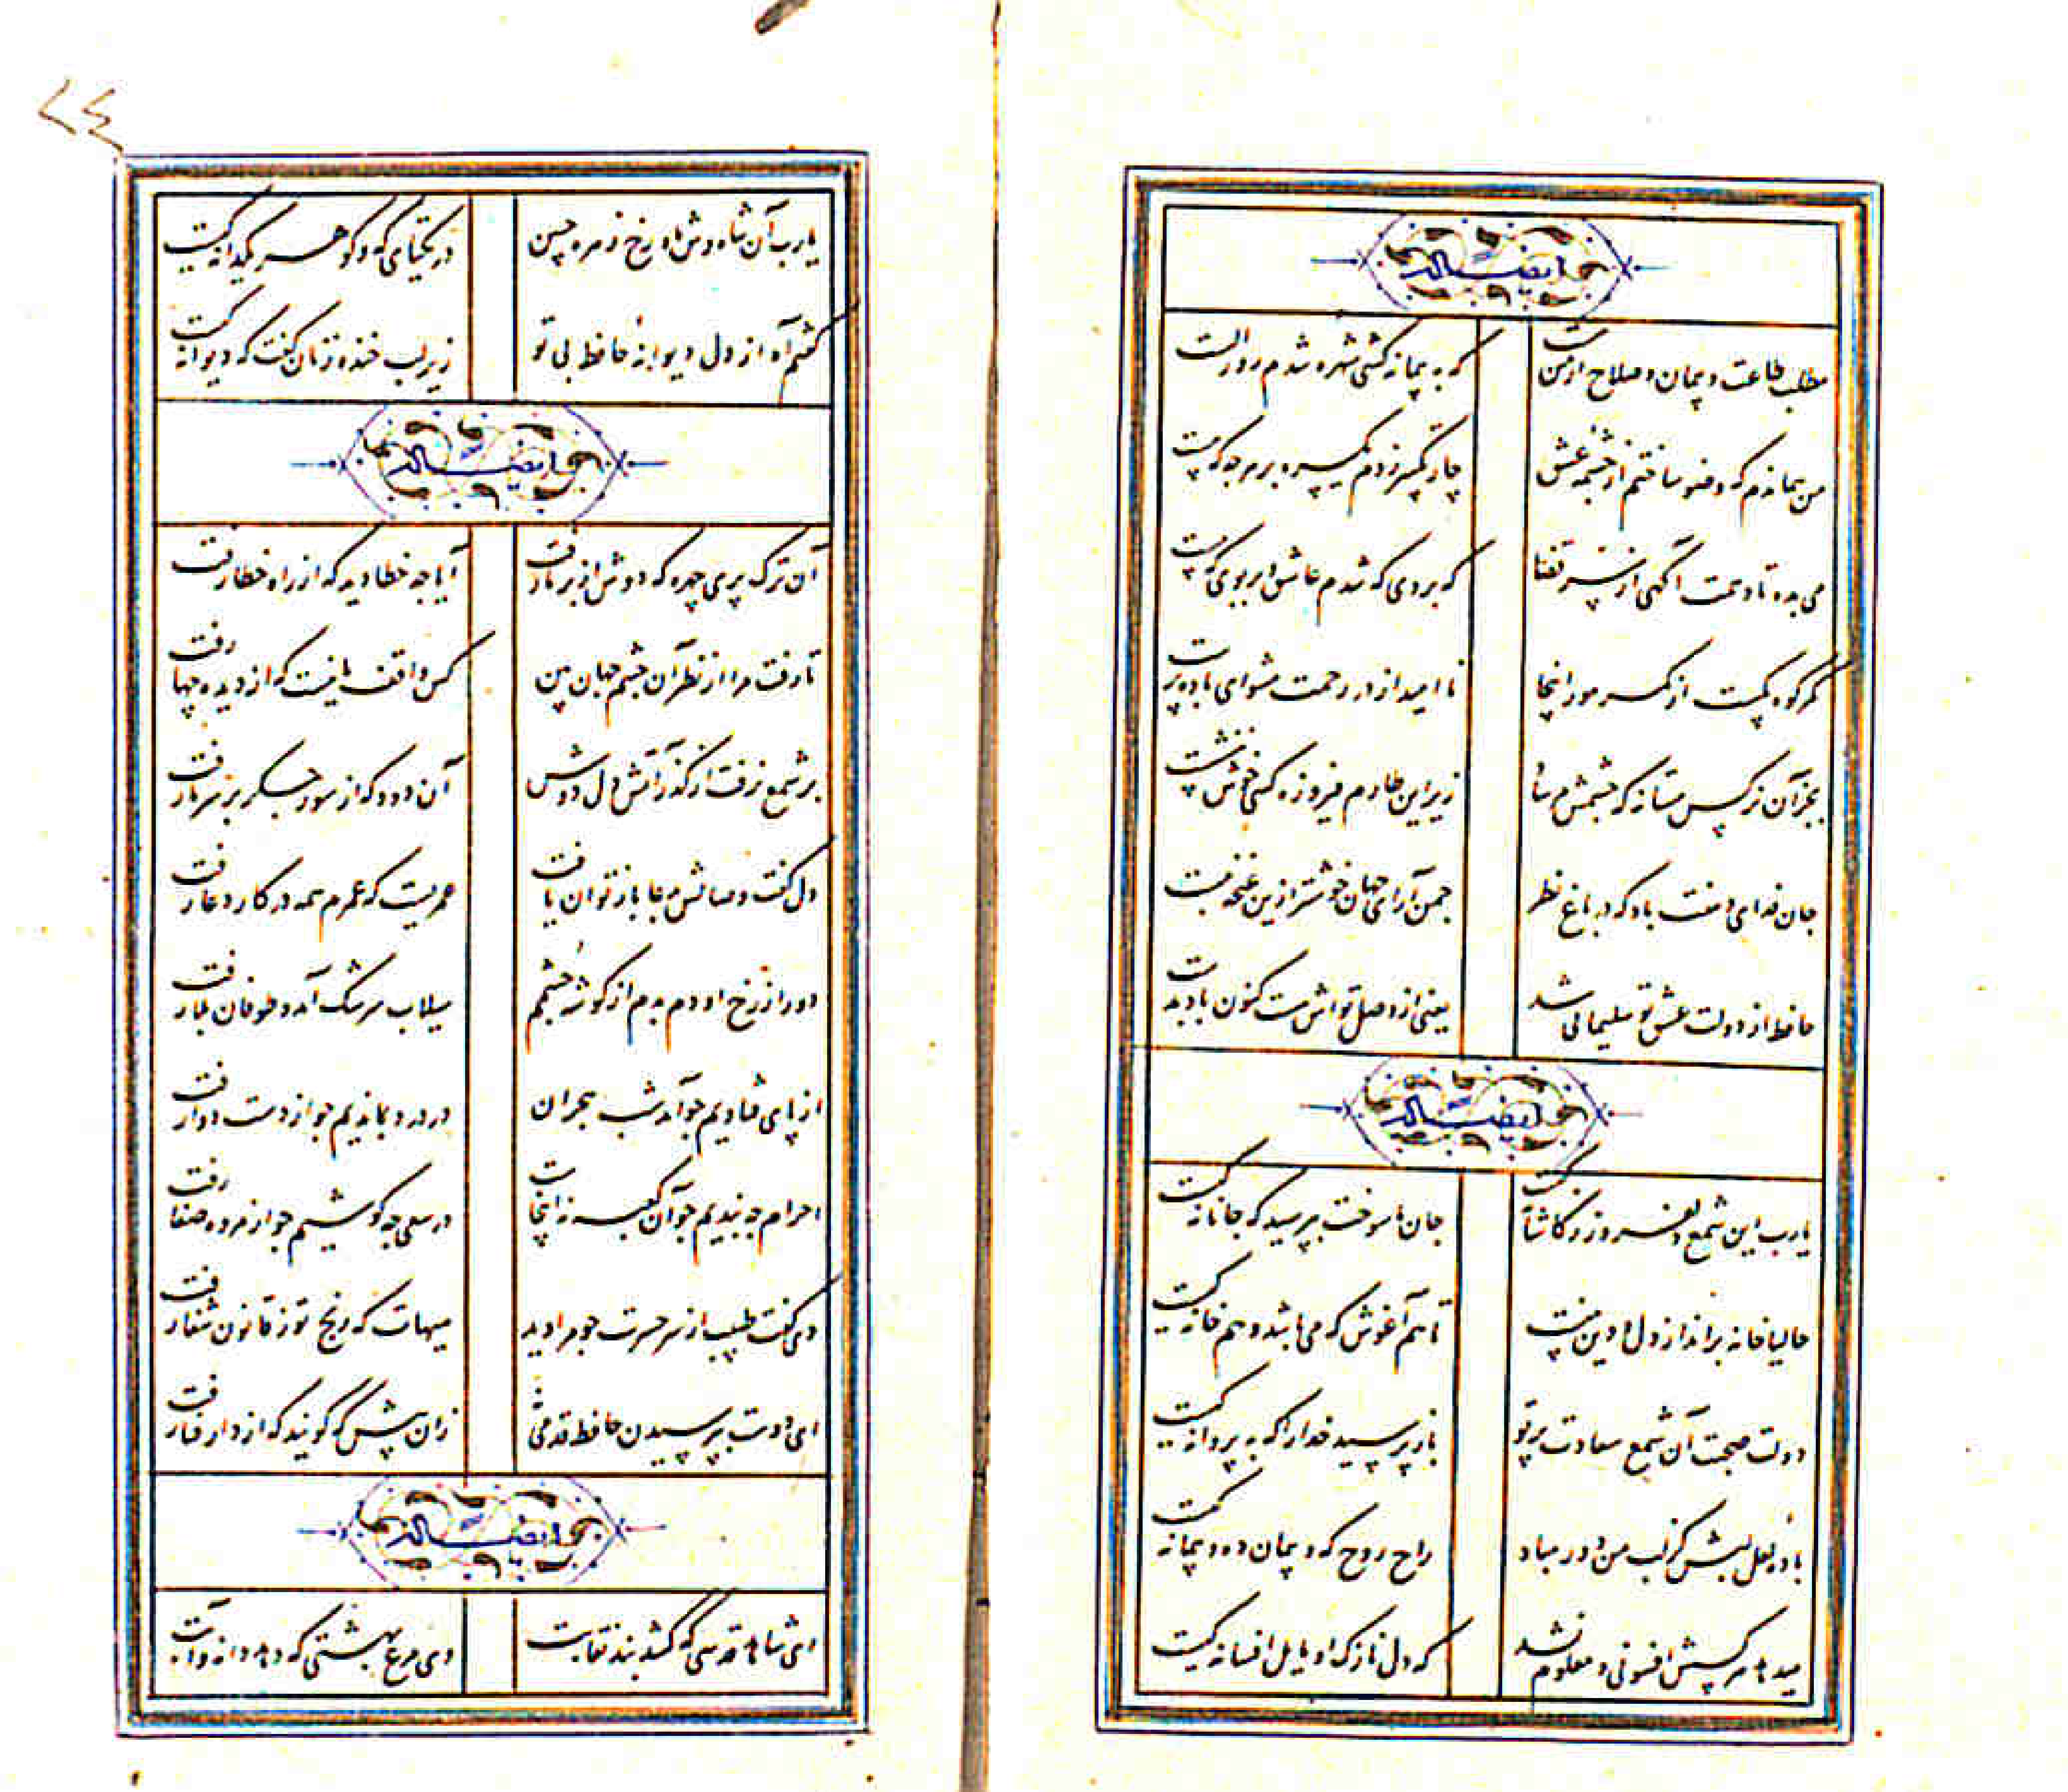 وله ایضا
مطلب طاعت و پیمان و صلاح از من مست
که به پیمانه کشی شهره شدم روز الست
من هماندم که وضو ساختم از چشمه عشق
چار تکبیر زدم یکسره بر هر چه که هست
می بده تا دهمت آگهی از سر قضا
که بروی که شدم عاشق و بر بوی که مست
کمر کوه کمست از کمر مور اینجا
ناامید از در رحمت مشو ای باده پرست
بجز آن نرگس مستانه که چشمش مرساد
زیر این طارم فیروزه کسی خوش ننشست
جان فدای دهنت باد که در باغ نظر
چمن آرای جهان خوشتر ازین غنچه نبست
حافظ از دولت عشق تو سلیمانی شد
یعنی از وصل تواش هست کنون باد بدست
وله ایضا
یارب این شمع دلفروز ز کاشانه کیست
جان ما سوخت بپرسید که جانانه کیست
حالیا خانه برانداز دل و دین منست
تا هم آغوش که می باشد و هم خانه کیست
دولت صحبت آن شمع سعادت پرتو
باز پرسید خدا را که به پروانه کیست
باده لعل لبش کز لب من دور مباد
راح روح که و پیمان ده و پیمانه کیست
میدهد هر کسش افسونی و معلوم نشد
که دل نازک او مایل افسانه کیست
یارب آن شاه وش ماه رخ زهره جبین
در یکتای که و گوهر یکدانه کیست
گفتم آه از دل دیوانه حافظ بی تو
زیر لب خنده زنان گفت که دیوانه کیست
وله ایضا
آن ترک پری چهره که دوش از بر ما رفت
آیا چه خطا دید که از راه خطا رفت
تا رفت مرا از نظر آن چشم جهان بین
کس واقف ما نیست که از دیده چها رفت
بر شمع نرفت از گذر آتش دل دوش
آن دود که از سوز جگر بر سر ما رفت
دل گفت وصالش بدعا باز توان یافت
عمریست که عمرم همه در کار دعا رفت
دور از رخ او دم بدم از گوشه چشمم
سیلاب سرشک آمد و طوفان بلا رفت
از پای فتادیم چو آمد شب هجران
در درد بماندیم چو از دست دوا رفت
احرام چه بندیم چو آن کعبه نه اینجاست
در سعی چه کوشیم چو از مروه صفا رفت
دی گفت طبیب از سر حسرت چو مرا دید
هیهات که رنج تو ز قانون شفا رفت
ای دوست بپرسیدن حافظ قدمی نه
زان پیش که گویند که از دار فنا رفت
وله ایضا
ای شاهد قدسی که کشد بند نقابت
وی مرغ بهشتی که دهد دانه و آبت